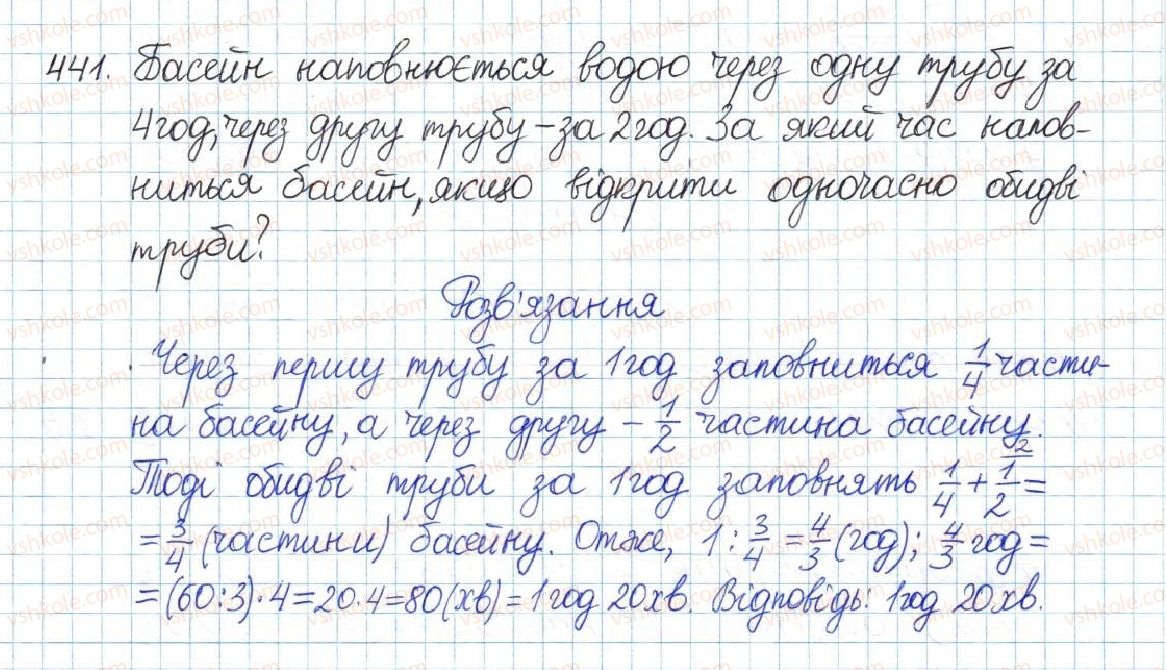 441. Басейн наповнюється водою через одну трубу за
4год, через другу трубу – за 2год. За який час напов-
ниться басейн, якщо відкрити одночасно обидві
труби?
Розв'язання
Через першу трубу за 1год заповниться 1/4 части-
на басейну, а через другу – 1/2 частина басейну.
Тоді обидві труби за 1год заповнять 1/4 + 1/2 ² =
= 3/4 (частини) басейну. Отже, 1 : 3/4 = 4/3 (год); 4/3 год =
= (60:3)·4=20·4=80(хв)=1год 20хв. Відповідь: 1год 20хв.